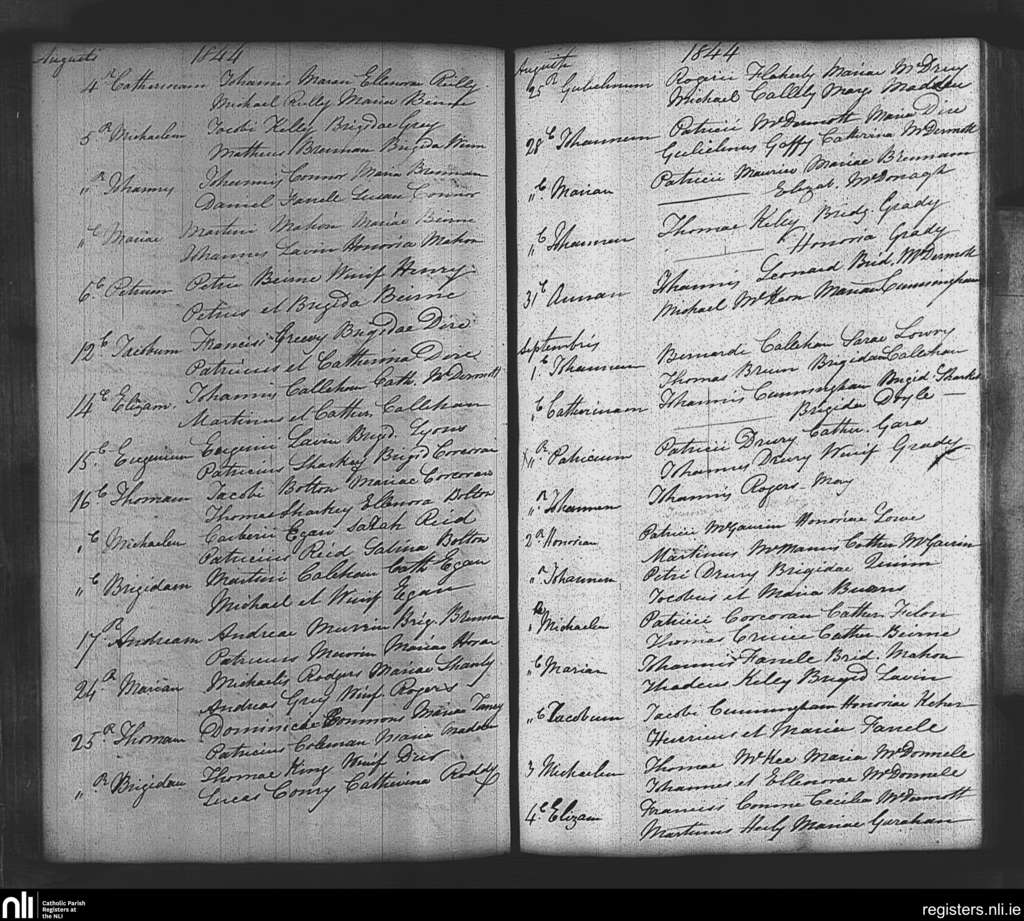 Augusti 1844
4 R Catherinam Johannis Maran Ellenorae Reilly
Michael Reilly Maria Beirne
5 R Michaelem Jacobi Kelley Brigidae Grey
Matheus Brennan Brigida Winn
" R Johannis Johannis Connor Maria Brennan
Daniel Farrele Susan Connor
" C Mariae Martini Mahon Mariae Beirne
Johannis Lavin Honoria Mahon
6 C Petrum Petri Beirne Winif Henry
Petrus et Brigida Beirne
12 C Jacobum Francisi Greevy Brigidae Dire
Patricius et Catherina Dore
14 C Elizam Johannis Callehan Cath. McDermott
Martinus et Cather. Callehan
15 C Eugenium Eugenii Lavin Brigd. Lyons
Patricius Sharkey Brigid Corcoran
16 C Thomam Jacobi Bolton Mariae Corcoran
Thomas Sharkey Ellenora Bolton
" C Michaelem Egan Sarah Reid
Patricius Reid Bolton
" C Brigidam Martini Calehan Cath. Egan
Michael et Winif Egan
17 R Andream Andreae Murrin Brig. Brennan
Patricius Murrin Mariae Horan
24 R Marian Michaelis Rodgers Mariae Shanly
Andreas Grey Winif Rogers
25 R Thomam Dominicae Commons Mariae
Patricius Coleman Maria Madden
" R Brigidam Thomae King Winif Dier
Lucas Conry Catherina Roddy
Augusti 1844
25 R Gulielmum Rogirii Flaherty Mariae McDrury
Michael Callely Mary Madden
28 C Johannem Patricii McDermott Maria Dire
Gulielmus Gaffy Catherina McDermott
" C Marian Patricii Maurice Mariae Brennam
Elizab. McDonagh
" C Johannem Thomae Keley Bridg. Grady
Honoria Grady
31 C Annan Johannis Leonard Brid. McDermott
Michael McKeon Marian Cunningham
Septembris
1 C Johannem Bernardi Callehan Sarae Lowry
Thomas Bruen Brigidan Callehan
" C Catherinam Johannis Cunningham Brigid Sharket
Brigida Doyle
" R Patricum Patricii Drury Cather. Gara
Johannes Drury Winif Grady
" R Johannem Johannis Rogers - May
2 R Honorian Patricii McGaurin Honoriae Lowe
Martinus McManus Cather McGaurin
" R Johannem Petri Drury Brigidae Quinn
Jacobus et Maria Burns
" R Michaelem Patricii Corcoran Cather. Filon
Thomas Cather Beirne
" C Marian Johannis Farrele Brid. Mahon
Thadeus Keley Brigid Lavin
" C Jacobum Jacobi Cunningham Honoriae Keher
Henricus et Mariae Farrele
3 Michaelem Thomae McKee Maria McDonnele
Johannes et Ellenorae McDonnele
4 C Elizam Francisi Conine Cecilia McDermott
Martinus Healy Mariae Garahan
nli Catholic Parish Registers at the NLI
registers.nli.ie